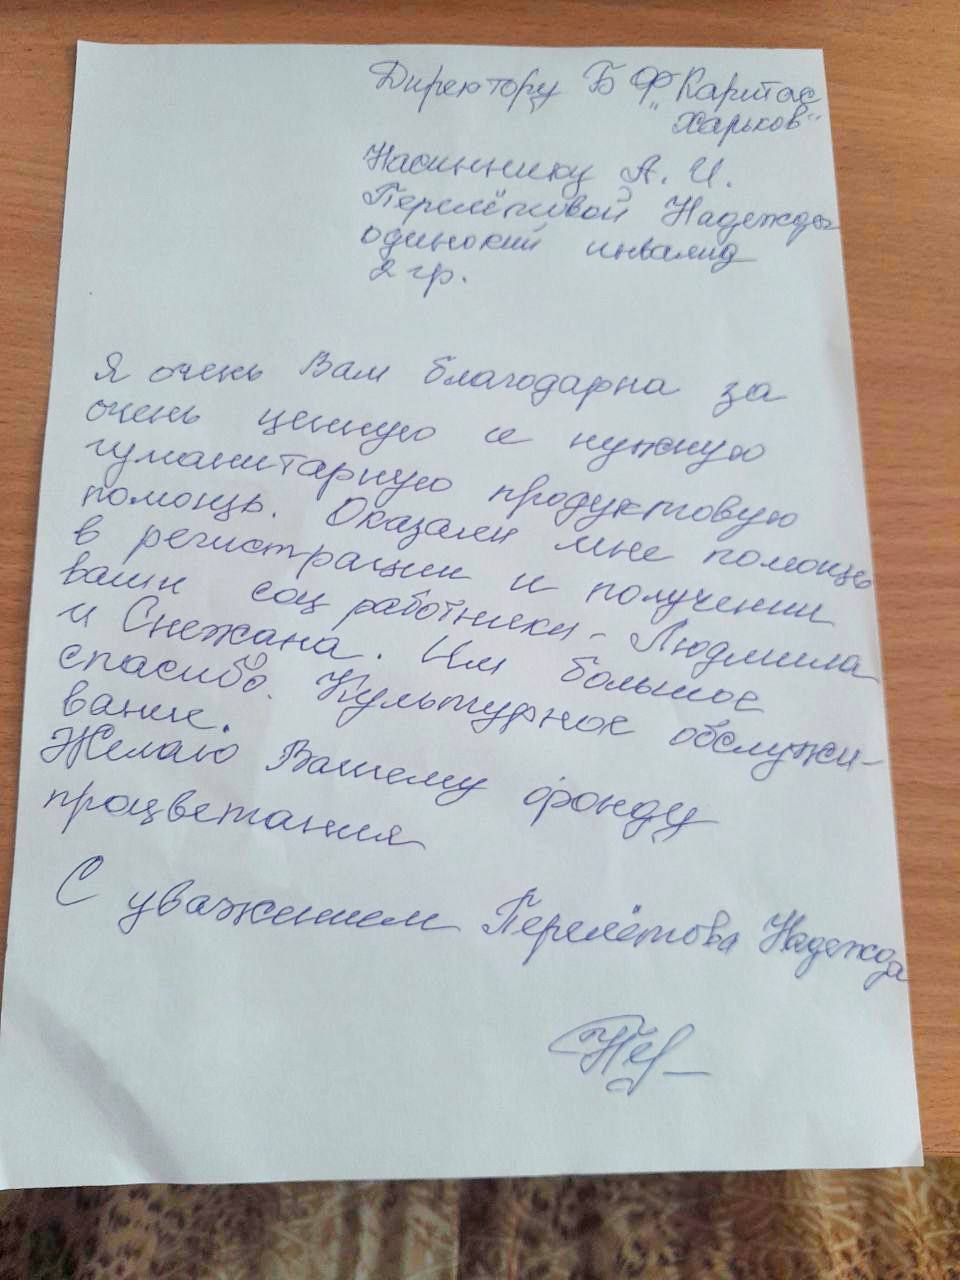 Директору БФ „Каритас
Харьков"
Насиннику А. И.
Перелётовой Надежды
одинокий инвалид
2 гр.
Я очень Вам благодарна за
очень ценную и нужную
гуманитарную продуктовую
помощь. Оказали мне помощь
в регистрации и получении
ваши соц работники - Людмила
и Снежана. Им большое
спасибо. Культурное обслужи-
вание.
Желаю Вашему фонду
процветания
С уважением Перелётова Надежда